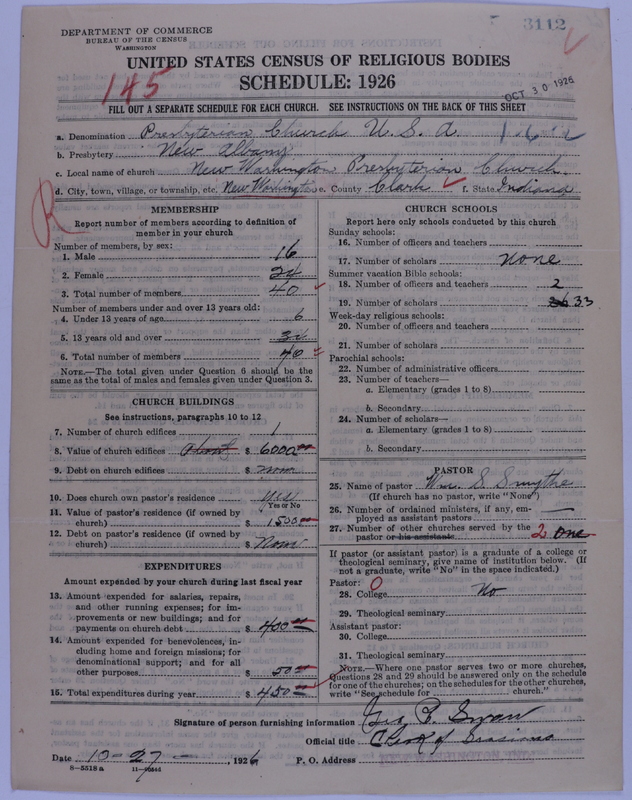 3112
DEPARTMENT OF COMMERCE
BUREAU OF THE CENSUS
WASHINGTON
UNITED STATES CENSUS OF RELIGIOUS BODIES
SCHEDULE: 1926
145
OCT 30 1926
FILL OUT A SEPARATE SCHEDULE FOR EACH CHURCH. SEE INSTRUCTIONS ON THE BACK OF THIS SHEET
a. Denomination Presbyterian Church U. S. A.
b. Presbytery New Albany
c. Local name of church New Washington Presbyterian Church
d. City, town, village, or township, etc. New Washington e. County Clark f. State Indiana
R
MEMBERSHIP
Report number of members according to definition of
member in your church
Number of members, by sex:
1. Male 16
2. Female 24
3. Total number of members 40
Number of members under and over 13 years old:
4. Under 13 years of age 6
5. 13 years old and over 34
6. Total number of members 40
NOTE.—The total given under Question 6 should be
same as the total of males and females given under Question 3.
CHURCH BUILDINGS
See instructions, paragraphs 10 to 12
7. Number of church edifices 1
8. Value of church edifices about $ 6000.00
9. Debt on church edifices $ none
10. Does church own pastor's residence yes
Yes or No
11. Value of pastor's residence (if owned by
church) $ 1500
12. Debt on pastor's residence (if owned by
church) $ None
EXPENDITURES
Amount expended by your church during last fiscal year
13. Amount expended for salaries, repairs,
and other running expenses; for im-
provements or new buildings; and for
payments on church debt $ 400.00
14. Amount expended for benevolences, in-
cluding home and foreign missions; for
denominational support; and for all
other purposes $ 50.00
15. Total expenditures during year $ 450.00
CHURCH SCHOOLS
Report here only schools conducted by this church
Sunday schools:
16. Number of officers and teachers
17. Number of scholars None
Summer vacation Bible schools:
18. Number of officers and teachers 2
19. Number of scholars 33
Week-day religious schools:
20. Number of officers and teachers
21. Number of scholars
Parochial schools:
22. Number of administrative officers
23. Number of teachers—
a. Elementary (grades 1 to 8)
b. Secondary
24. Number of scholars—
a. Elementary (grades 1 to 8)
b. Secondary
PASTOR
25. Name of pastor Wm. S. Smythe
(If church has no pastor, write "None")
26. Number of ordained ministers, if any, em-
ployed as assistant pastors —
27. Number of other churches served by the
pastor or his assistants 2 One
If pastor (or assistant pastor) is a graduate of a college or
theological seminary, give name of institution below. (If
not a graduate, write "No" in the space indicated.)
Pastor: O
28. College No
29. Theological seminary
Assistant pastor:
30. College
31. Theological seminary
NOTE.—Where one pastor serves two or more churches,
Questions 28 and 29 should be answered only on the schedule
for one of the churches; on the schedules for the other churches,
write "See schedule for church."
Signature of person furnishing information Geo. B. Swan
Official title Clerk of Sessions
Date 10-27-, 1926 P. O. Address
8-5518a